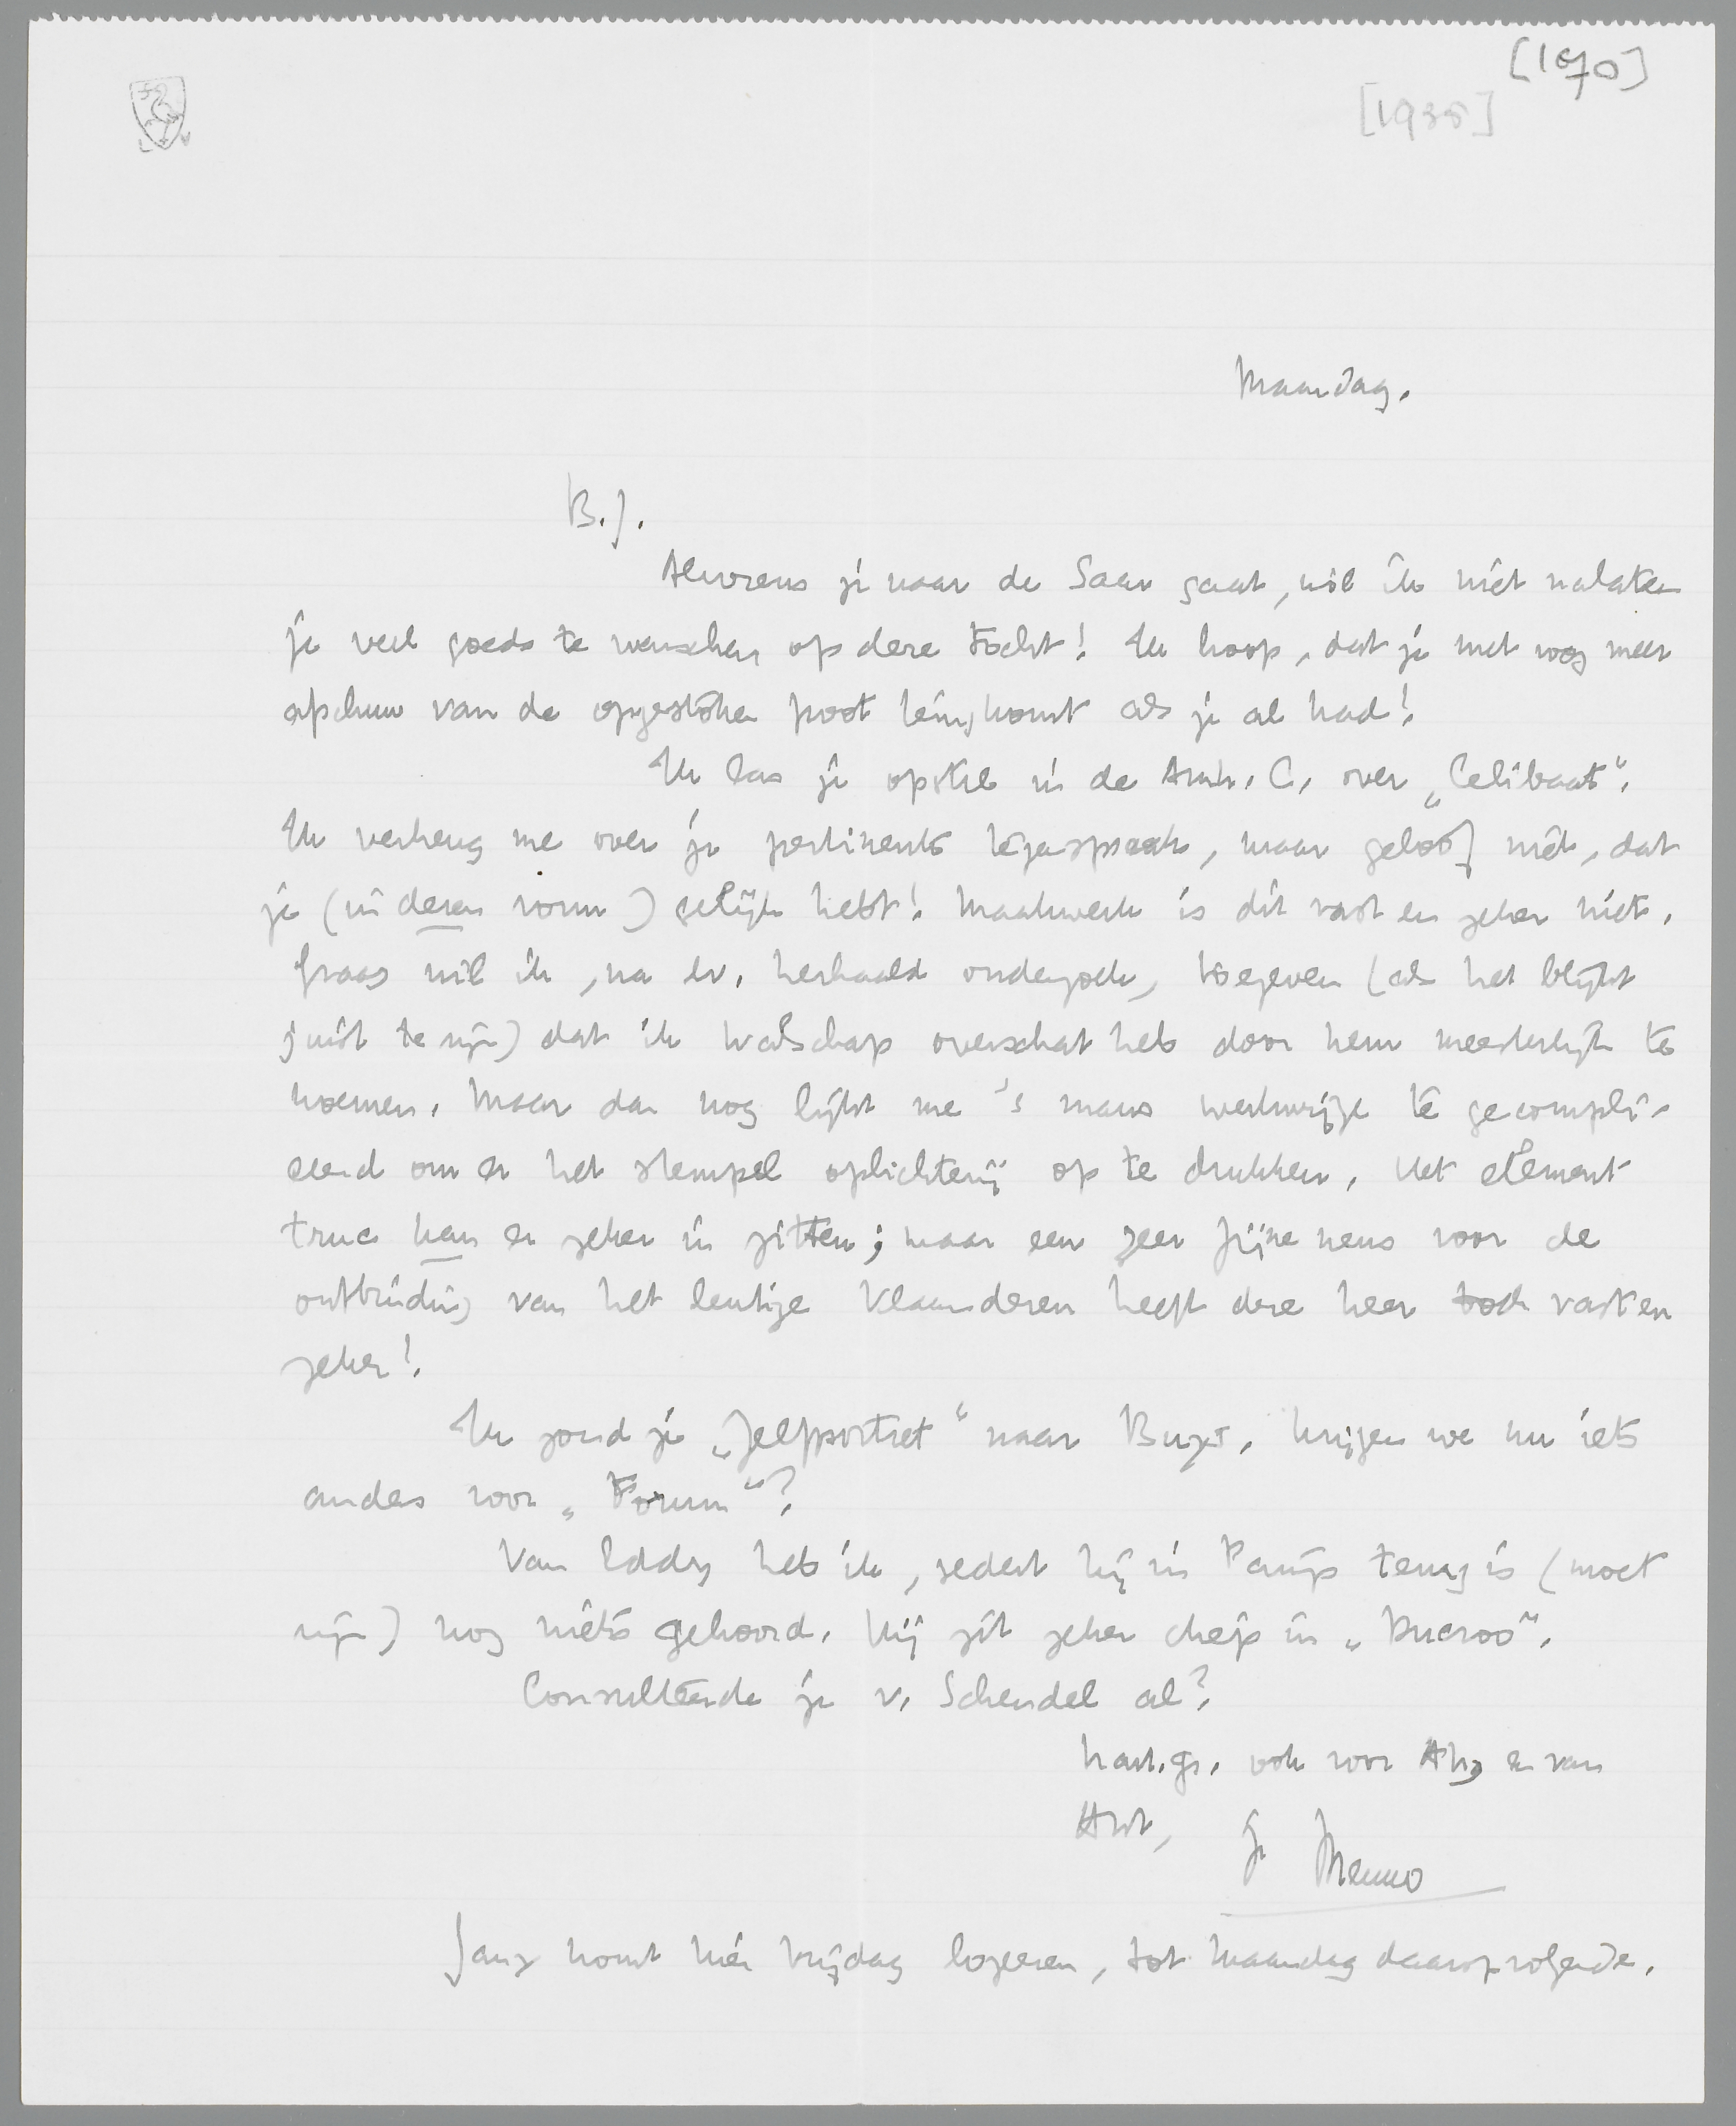 [190]
[1935]
Maandag.
B. J.
Alvorens je naar de Saar gaat, wil ik niet nalaten
je veel goeds te wenschen op deze tocht! Ik hoop, dat je met nog meer
afschuw van de opgestoken poot terugkomt als je al had!
Ik las je opstel in de Arnh. C. over „Celibaat”.
Ik verheug me over je pertinente tegenspraak, maar geloof niet, dat
je (in dezen vorm) gelijk hebt! Maakwerk is dit vast en zeker niet.
Graag wil ik, na ev. herhaald onderzoek, toegeven (als het blijkt
juist te zijn) dat ik Walschap overschat heb door hem meesterlijk te
noemen. Maar dan nog lijkt me 's mans werkwijze te gecompli-
ceerd om er het stempel oplichterij op te drukken. Het element
truc kan er zeker in zitten; maar een zeer fijne neus voor de
ontbinding van het leutige Vlaanderen heeft deze heer toch vast en
zeker!
Ik zond je „Zelfportret” naar Buys. Krijgen we nu iets
anders voor „Forum”?
Van Eddy heb ik, sedert hij in Parijs terug is (moet
zijn) nog niets gehoord. Hij zit zeker diep in „Ducroo”.
Consulteerde je v. Schendel al?
hart. gr. ook voor Atty en van
Ant, je Menno
Jany komt hier Vrijdag logeeren, tot Maandag daaropvolgende.